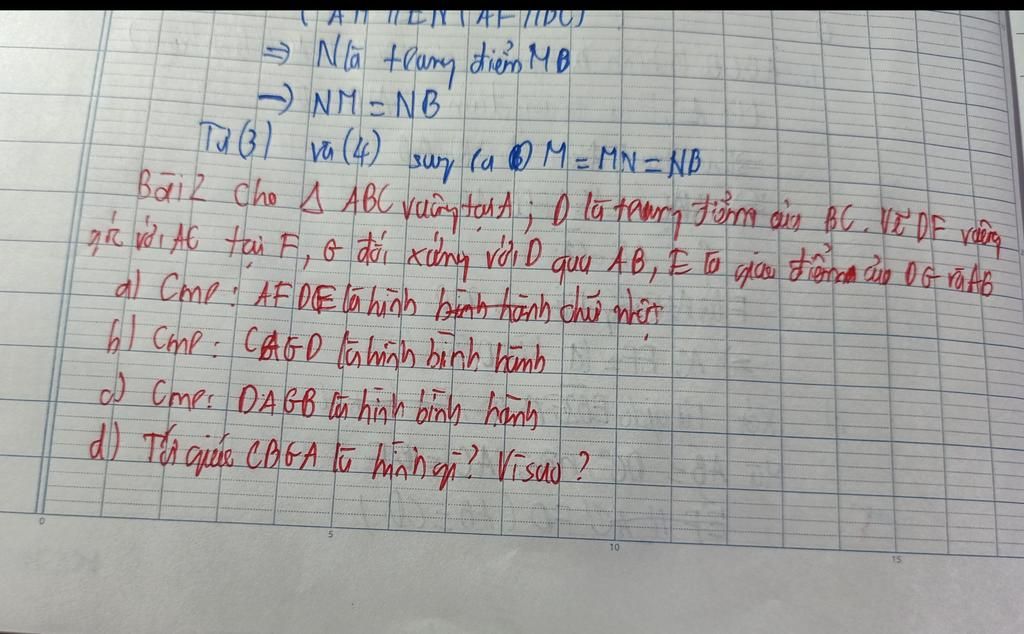 (AM // EN (AF // DC)
=> N là trung điểm MB
-> NM = NB
Từ (3) và (4) suy ra DM = MN = NB
Bài 2 Cho Δ ABC vuông tại A; D là trung điểm của BC. Vẽ DF vuông
góc với AC tại F, G đối xứng với D qua AB, E là giao điểm của DG và AB
a) Cmr: AFDE là hình bình hành chữ nhật
b) Cmr: CAGD là hình bình hành
c) Cmr: DAGB là hình bình hành
d) Tứ giác CBGA là hình gì? Vì sao?
0 5 10 15